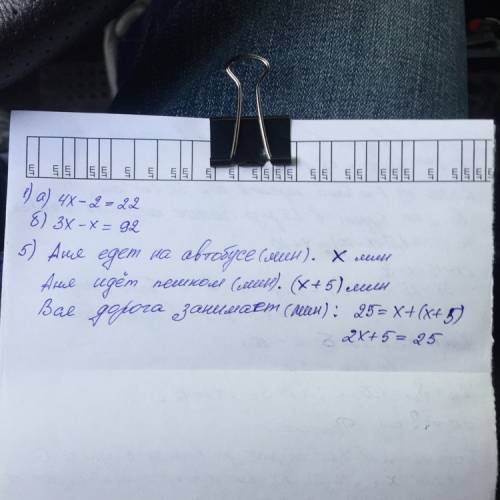 1) а) 4x - 2 = 22
б) 3x - x = 92
5) Аня едет на автобусе (мин). x мин
Аня идёт пешком (мин). (x + 5) мин
Вся дорога занимает (мин): 25 = x + (x + 5)
2x + 5 = 25